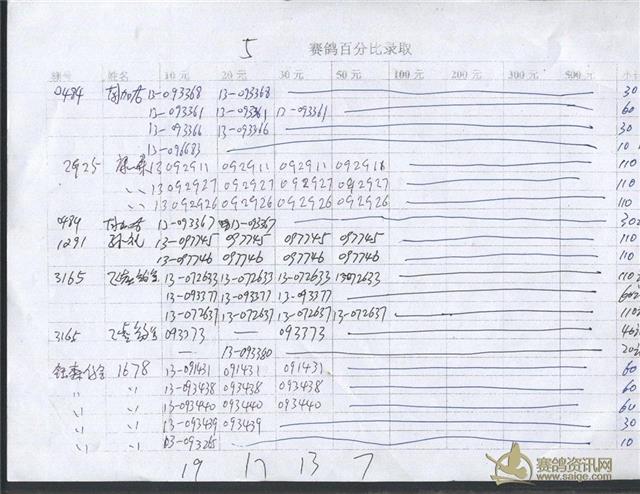 5 赛鸽百分比录取
编号 姓名 10元 20元 30元 50元 100元 200元 300元 500元 小计
0484 13-093368 13-093368 30
13-093361 13-093361 13-093361 60
13-093366 13-093366 30
13-096683 10
2925 13 092911 092911 092911 092911 110
〃 13 092927 092927 092927 092927 110
〃 13 092926 092926 092926 092926 110
0484 13-093367 13-093367 30
1291 孙礼 13-097745 097745 097745 097745 110
13-097746 097746 097746 097746 110
3165 13-072633 13-072633 13-072633 13-072633 110
13-093377 13-093377 13-093377 60
13-072637 13-072637 13-072637 13-072637 110
3165 093373 — 093373 40
— 13-093380 20
1678 13-091431 091431 091431 60
〃 〃 13-093438 093438 093438 60
〃 〃 13-093440 093440 093440 60
〃 〃 13-093439 093439 30
〃 〃 10
19 17 13 7
赛鸽资讯网
www.saige.com